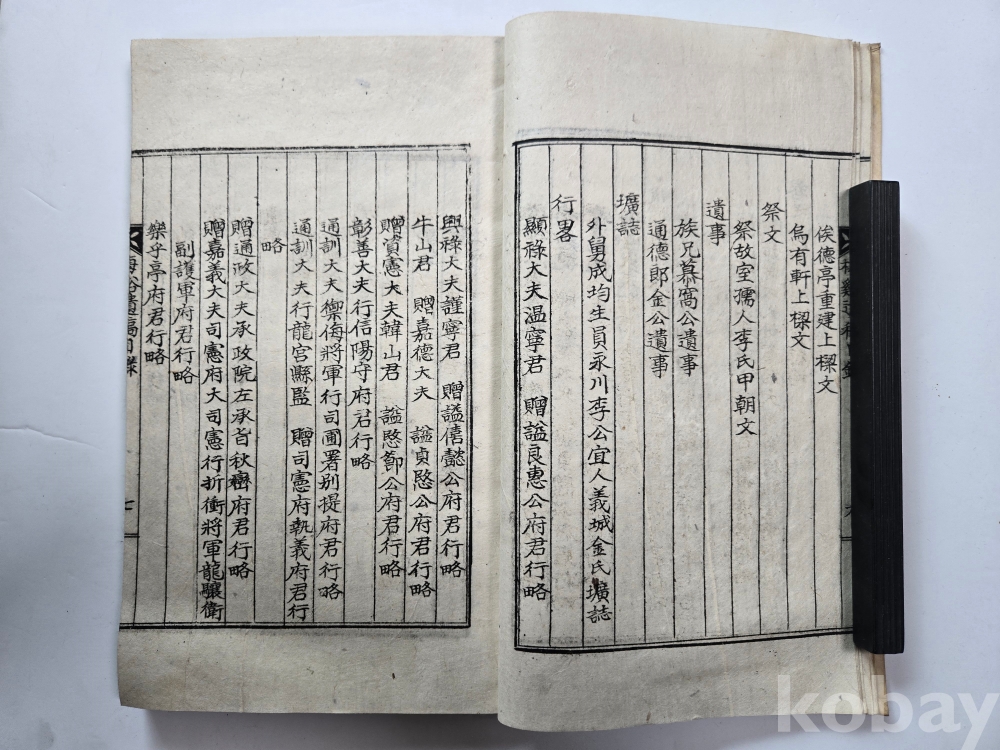 俟德亭重建上樑文
烏有軒上樑文
祭文
祭故室孺人李氏甲朝文
遺事
族兄慕窩公遺事
通德郎金公遺事
壙誌
外舅成均生員永川李公宜人義城金氏壙誌
行畧
顯祿大夫温寧君 贈諡良惠公府君行略
興祿大夫謹寧君 贈諡僖懿公府君行略
牛山君 贈嘉德大夫 諡貞愍公府君行略
贈資憲大夫韓山君 諡愍節公府君行略
彰善大夫行信陽守府君行略
通訓大夫禦侮將軍行司圃署别提府君行略
通訓大夫行龍宮縣監 贈司憲府執義府君行
略
贈通政大夫承政院左承旨秋巒府君行略
贈嘉義大夫司憲府大司憲行折衝將軍龍驤衛
副護軍府君行略
樂乎亭府君行略
遺稿目錄
七
kobay